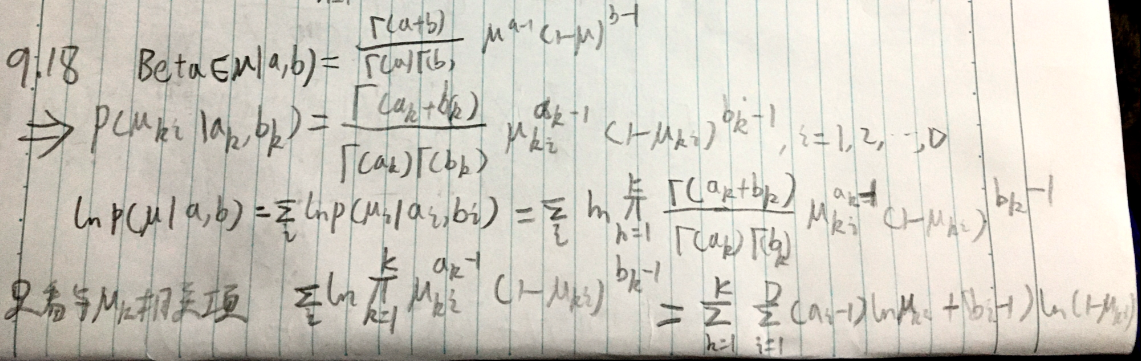 9.18 Beta(μ|a,b) = Γ(a+b) / Γ(a)Γ(b) μ^{a-1} (1-μ)^{b-1}
⇒ p(μ_{ki}|a_k,b_k) = Γ(a_k+b_k) / Γ(a_k)Γ(b_k) μ_{ki}^{a_k-1} (1-μ_{ki})^{b_k-1}, i=1,2,…,D
ln p(μ|a,b) = Σ_i ln p(μ_i|a_i,b_i) = Σ_i ln ∏_{k=1}^{K} Γ(a_k+b_k) / Γ(a_k)Γ(b_k) μ_{ki}^{a_k-1} (1-μ_{ki})^{b_k-1}
只看与μ_k相关项 Σ_i ln ∏_{k=1}^{K} μ_{ki}^{a_k-1} (1-μ_{ki})^{b_k-1} = Σ_{k=1}^{K} Σ_{i=1}^{D} (a_i-1) ln μ_{ki} + (b_i-1) ln(1-μ_{ki})